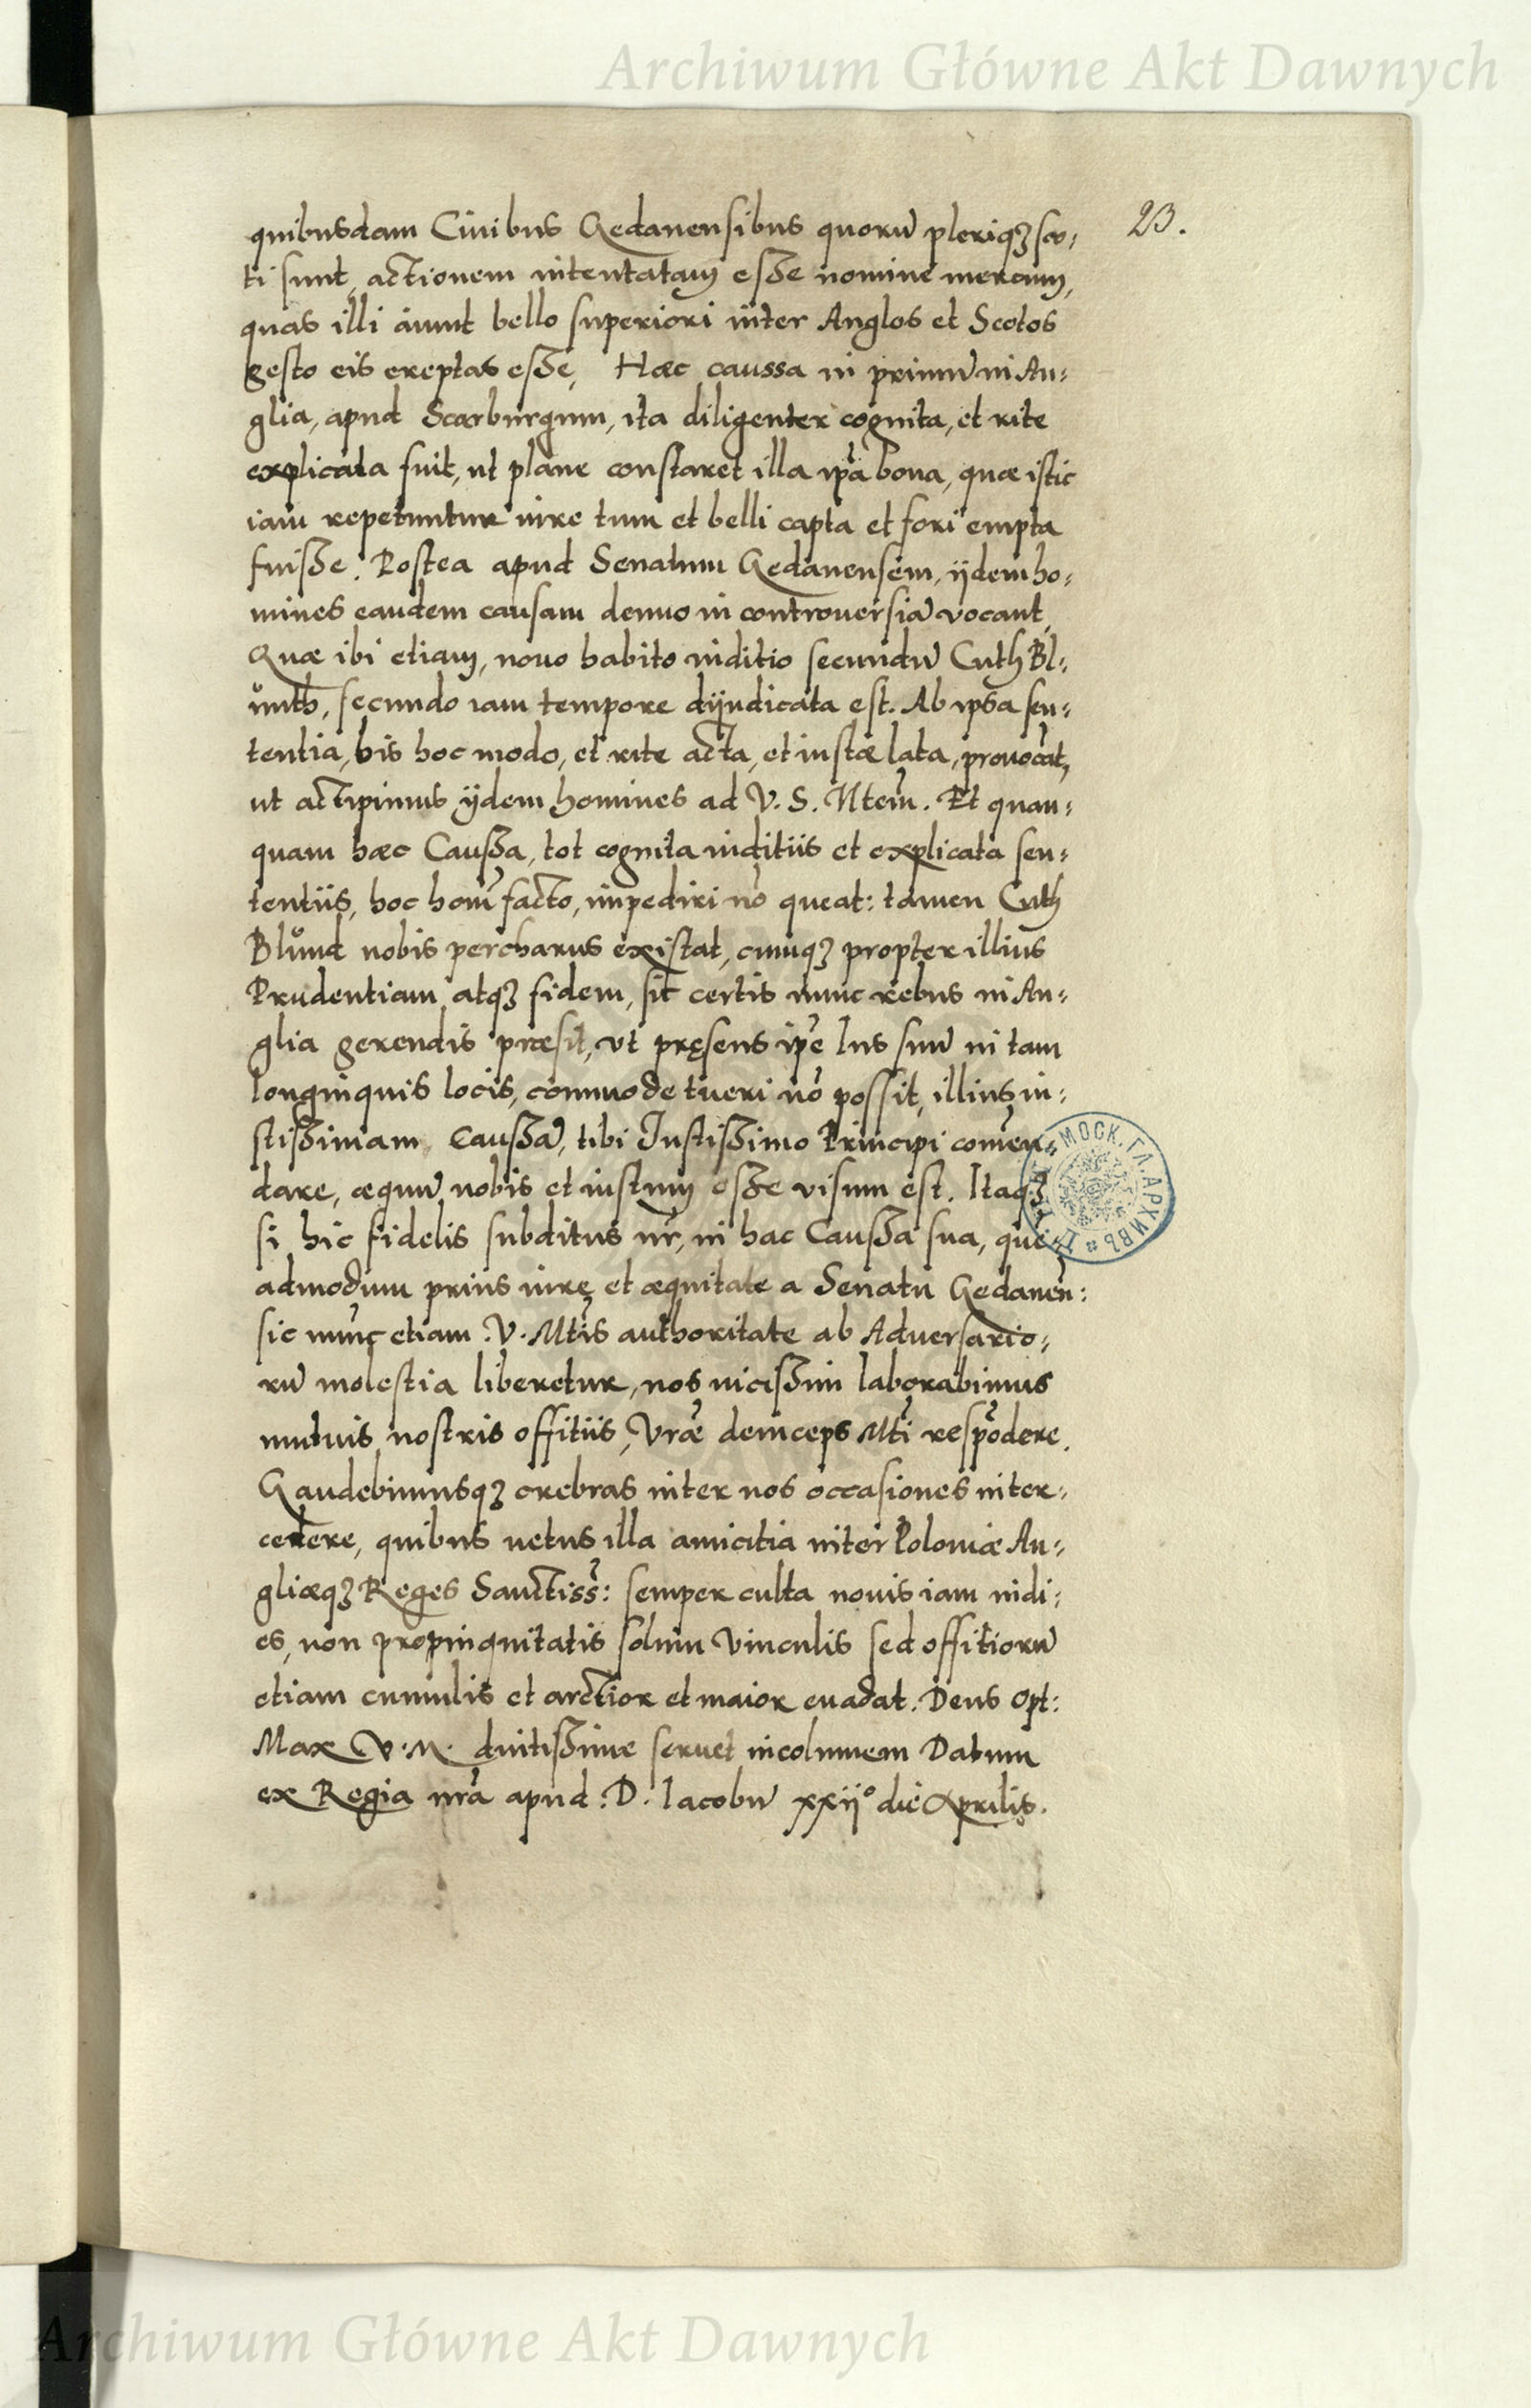 Archiwum Główne Akt Dawnych
23.
quibusdam Ciuibus Gedanensibus quorū pleriqȝ sco:
ti sunt, actionem intentatam esse nomine mercium,
quas illi aiunt bello superiori inter Anglos et Scotos
gesto eis ereptas esse, Hæc caussa in primū in An:
glia, apud Scarburgum, ita diligenter cognita, et rite
explicata fuit, ut plane constaret illa ip̄a bona, quæ istic
iam repetuntur iure tum et belli capta et fori empta
fuisse. Postea apud Senatum Gedanensem, ijdem ho:
mines eandem causam denuo in controuersiā vocant,
Quæ ibi etiam, nouo habito iuditio secundū Cuth Bl:
ůnth, secundo iam tempore dijudicata est. Ab ipsa sen:
tentia, bis hoc modo, et rite acta, et iustæ lata, prouocāt,
ut accipimus ijdem homines ad V. S. Mtem̄. Et quan:
quam hæc Caussa, tot cognita iuditiis et explicata sen:
tentiis, hoc hoim̄ facto, impediri nō queat: tamen Cuth
Blůnd nobis percharus existat, cumqȝ propter illius
Prudentiam atqȝ fidem, sit certis nunc rebus in An:
glia gerendis præsit, vt pręsens ip̄e Ius suū in tam
longinquis locis, commode tueri nō possit, illius iu:
stissimam Caussā, tibi Iustissimo Principi com̄en:
dare, æquū nobis et iustum esse visum est. Itaqȝ
si hic fidelis subditus nr̄, in hac Caussa sua, que
admodum prius iure et æquitate a Senatu Gedanēn:
sic nunc etiam V. Mt̄is authoritate ab Aduersario:
rū molestia liberetur, nos uicissim laborabimus
mutuis nostris offitiis, Vr̄æ deinceps Mt̄i respōdere.
Gaudebimusqȝ crebras inter nos occasiones inter:
cedere, quibus uetus illa amicitia inter Poloniæ An:
gliæqȝ Reges Sanctiss̄: semper culta nouis iam indi:
es, non propinquitatis solum vinculis sed offitiorū
etiam cumulis et arctior et maior euadat. Deus Opt:
Max V. M. diutissime seruet incolumem Datum
ex Regia nr̄a apud. D. Iacobū xxij° die Aprilis.
МОСК. ГЛ. АРХИВЪ
Archiwum Główne Akt Dawnych